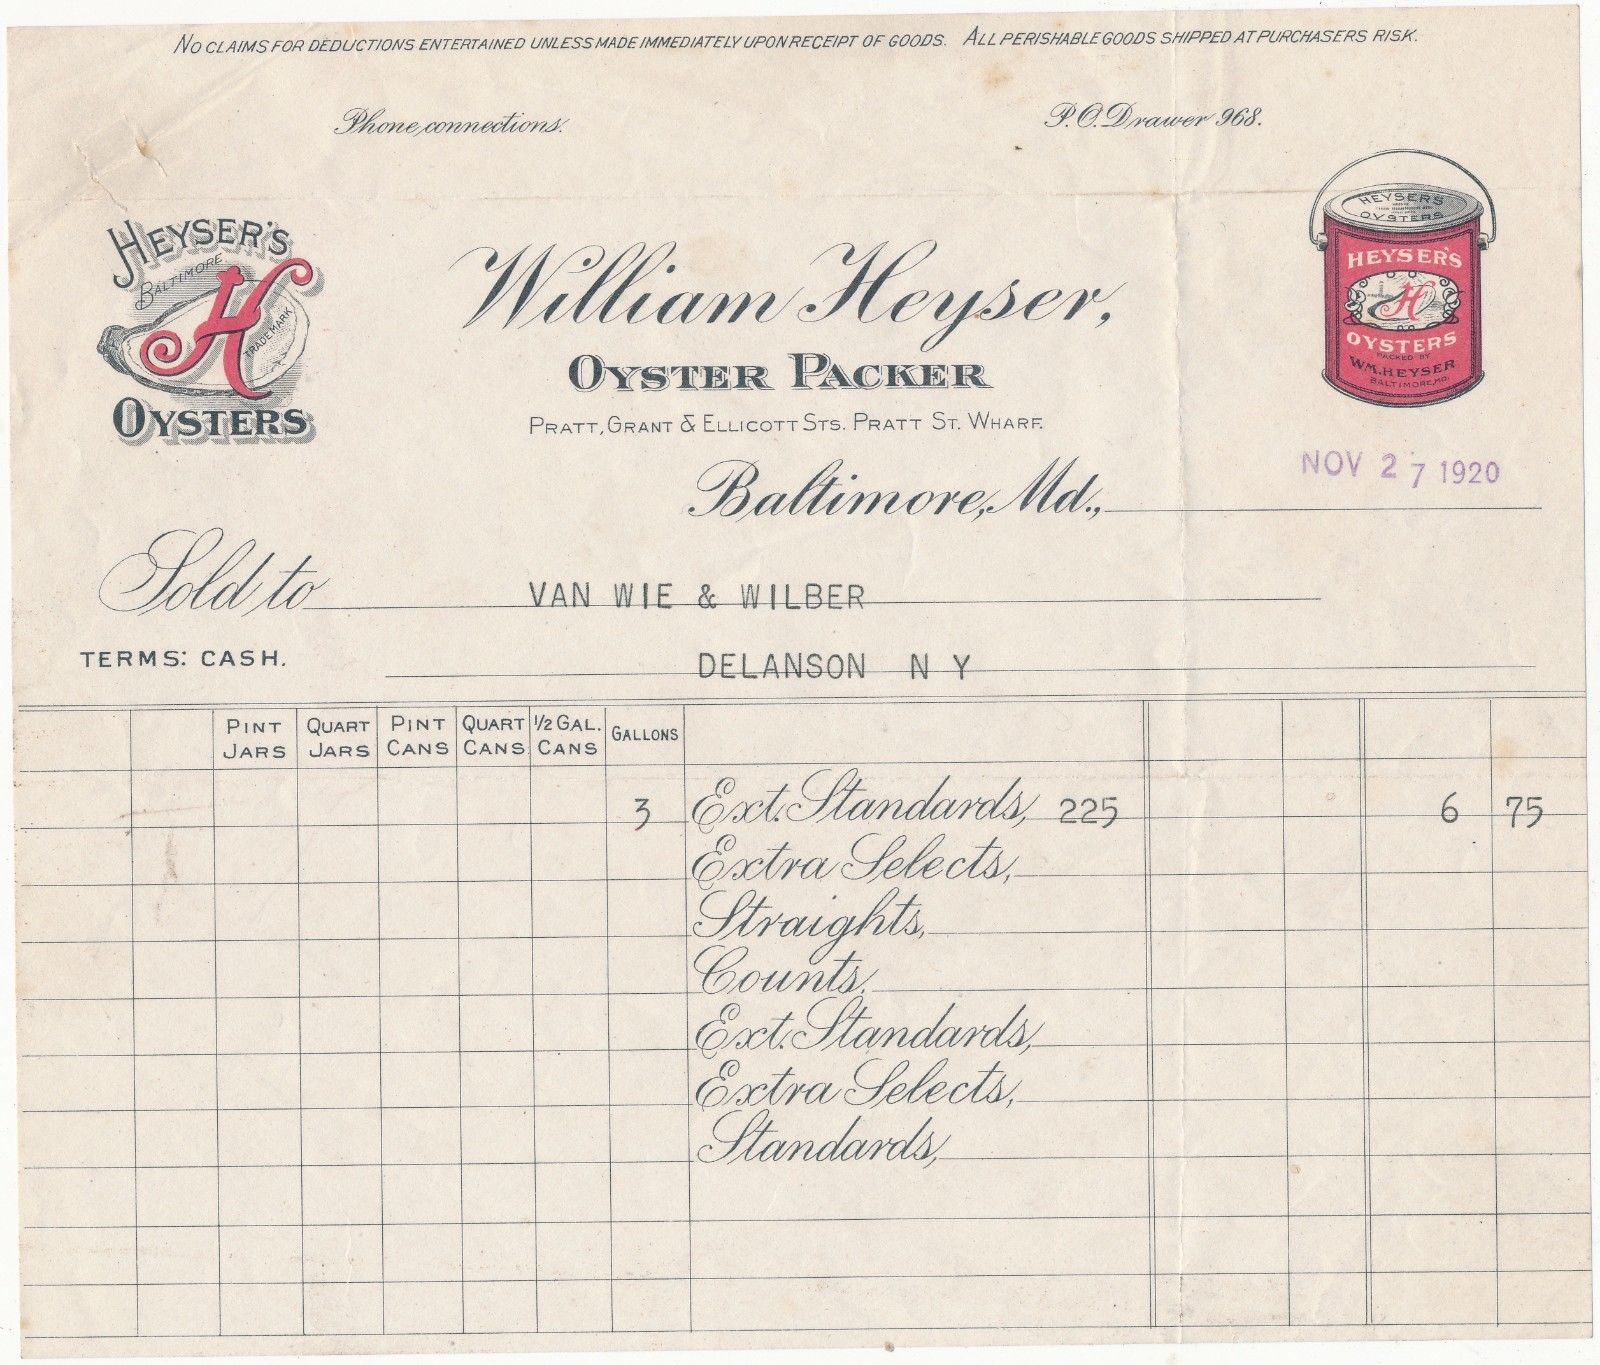 NO CLAIMS FOR DEDUCTIONS ENTERTAINED UNLESS MADE IMMEDIATELY UPON RECEIPT OF GOODS. ALL PERISHABLE GOODS SHIPPED AT PURCHASERS RISK.
Phone connections.
P.O. Drawer 968.
HEYSER'S
BALTIMORE
H
TRADE MARK
OYSTERS
William Heyser,
OYSTER PACKER
PRATT, GRANT & ELLICOTT STS. PRATT ST. WHARF.
HEYSER'S
OYSTERS
HEYSER'S
H
OYSTERS
PACKED BY
WM. HEYSER
BALTIMORE, MD.
NOV 27 1920
Baltimore, Md.,
Sold to VAN WIE & WILBER
TERMS: CASH. DELANSON N Y
PINT JARS QUART JARS PINT CANS QUART CANS 1/2 GAL. CANS GALLONS
3 Ext. Standards, 225 6 75
Extra Selects,
Straights,
Counts,
Ext. Standards,
Extra Selects,
Standards,